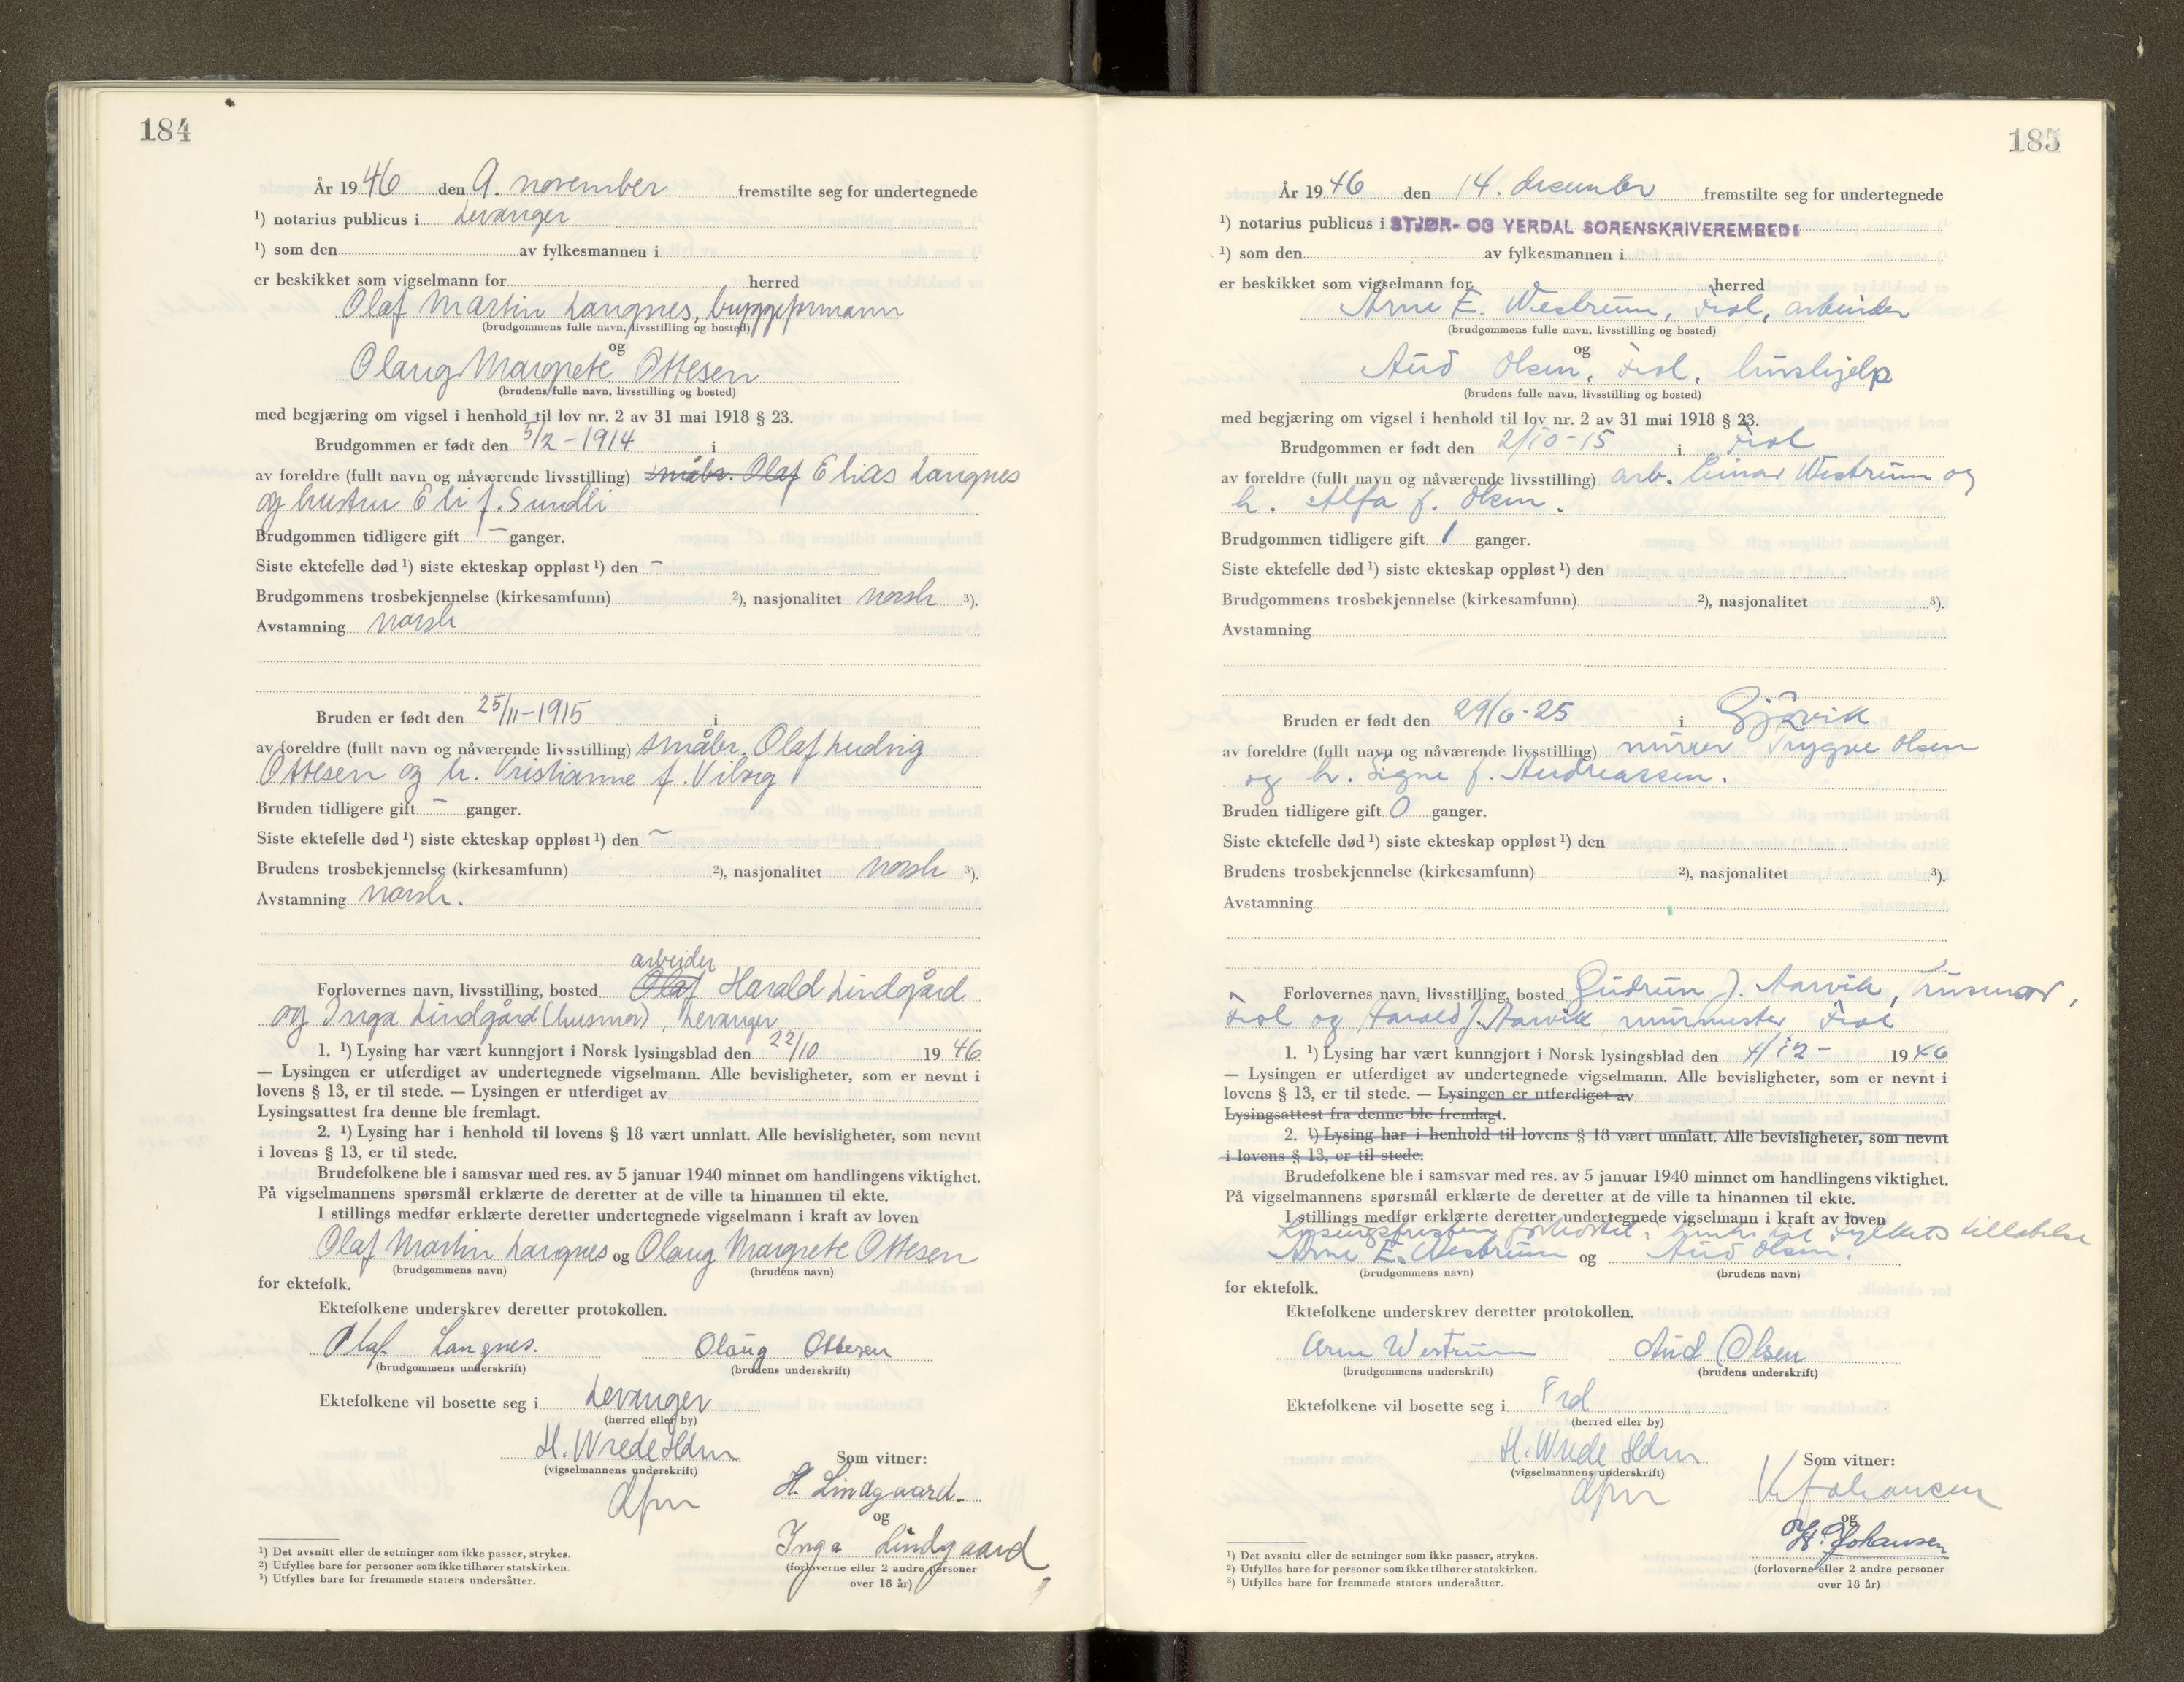 184
År 1946 den 9. november fremstilte seg for undertegnede
¹) notarius publicus i Levanger
¹) som den av fylkesmannen i
er beskikket som vigselmann for herred
Olaf Martin Langnes, byggeformann
(brudgommens fulle navn, livsstilling og bosted)
og
Olaug Margrete Ottesen
(brudens fulle navn, livsstilling og bosted)
med begjæring om vigsel i henhold til lov nr. 2 av 31 mai 1918 § 23.
Brudgommen er født den 5/2-1914 i
av foreldre (fullt navn og nåværende livsstilling) småbr. Olaf Elias Langnes
og hustru Eli f. Sundli
Brudgommen tidligere gift - ganger.
Siste ektefelle død ¹) siste ekteskap oppløst ¹) den -
Brudgommens trosbekjennelse (kirkesamfunn) ²), nasjonalitet norsk ³).
Avstamning norsk
Bruden er født den 25/11-1915 i
av foreldre (fullt navn og nåværende livsstilling) småbr. Olaf Ludvig
Ottesen og h. Kristianne f. Viborg
Bruden tidligere gift - ganger.
Siste ektefelle død ¹) siste ekteskap oppløst ¹) den -
Brudens trosbekjennelse (kirkesamfunn) ²), nasjonalitet norsk ³).
Avstamning norsk.
arbeider
Forlovernes navn, livsstilling, bosted Olaf Harald Lindgård
og Inga Lindgård (husmor), Levanger
1. ¹) Lysing har vært kunngjort i Norsk lysingsblad den 22/10 1946
— Lysingen er utferdiget av undertegnede vigselmann. Alle bevisligheter, som er nevnt i
lovens § 13, er til stede. — Lysingen er utferdiget av
Lysingsattest fra denne ble fremlagt.
2. ¹) Lysing har i henhold til lovens § 18 vært unnlatt. Alle bevisligheter, som nevnt
i lovens § 13, er til stede.
Brudefolkene ble i samsvar med res. av 5 januar 1940 minnet om handlingens viktighet.
På vigselmannens spørsmål erklærte de deretter at de ville ta hinannen til ekte.
I stillings medfør erklærte deretter undertegnede vigselmann i kraft av loven
Olaf Martin Langnes og Olaug Margrete Ottesen
(brudgommens navn) (brudens navn)
for ektefolk.
Ektefolkene underskrev deretter protokollen.
Olaf Langnes. Olaug Ottesen
(brudgommens underskrift) (brudens underskrift)
Ektefolkene vil bosette seg i Levanger
(herred eller by)
H. Wrede Holm
(vigselmannens underskrift)
Som vitner:
H. Lindgaard.
og
Inga Lindgaard
(forloverne eller 2 andre personer
over 18 år)
¹) Det avsnitt eller de setninger som ikke passer, strykes.
²) Utfylles bare for personer som ikke tilhører statskirken.
³) Utfylles bare for fremmede staters undersåtter.
185
År 1946 den 14. desember fremstilte seg for undertegnede
¹) notarius publicus i STJØR- OG VERDAL SORENSKRIVEREMBEDE
¹) som den av fylkesmannen i
er beskikket som vigselmann for herred
Arne E. Westrum, Frol, arbeider
(brudgommens fulle navn, livsstilling og bosted)
og
Aud Olsen, Frol, hushjelp
(brudens fulle navn, livsstilling og bosted)
med begjæring om vigsel i henhold til lov nr. 2 av 31 mai 1918 § 23.
Brudgommen er født den 2/10-15 i Frol
av foreldre (fullt navn og nåværende livsstilling) arb. Einar Westrum og
h. Alfa f. Olsen.
Brudgommen tidligere gift 1 ganger.
Siste ektefelle død ¹) siste ekteskap oppløst ¹) den
Brudgommens trosbekjennelse (kirkesamfunn) ²), nasjonalitet ³).
Avstamning
Bruden er født den 29/6-25 i Gjøvik
av foreldre (fullt navn og nåværende livsstilling) murer Trygve Olsen
og h. Signe f. Andreassen.
Bruden tidligere gift 0 ganger.
Siste ektefelle død ¹) siste ekteskap oppløst ¹) den
Brudens trosbekjennelse (kirkesamfunn) ²), nasjonalitet ³).
Avstamning
Forlovernes navn, livsstilling, bosted Gudrun J. Aarvik, husmor,
Frol og Harald J. Aarvik murmester Frol
1. ¹) Lysing har vært kunngjort i Norsk lysingsblad den 4/12- 1946
— Lysingen er utferdiget av undertegnede vigselmann. Alle bevisligheter, som er nevnt i
lovens § 13, er til stede. — Lysingen er utferdiget av
Lysingsattest fra denne ble fremlagt.
2. ¹) Lysing har i henhold til lovens § 18 vært unnlatt. Alle bevisligheter, som nevnt
i lovens § 13, er til stede.
Brudefolkene ble i samsvar med res. av 5 januar 1940 minnet om handlingens viktighet.
På vigselmannens spørsmål erklærte de deretter at de ville ta hinannen til ekte.
I stillings medfør erklærte deretter undertegnede vigselmann i kraft av loven
Lysingsfristen forkortet i henh. til Fylkets tillatelse
Arne E. Westrum og Aud Olsen.
(brudgommens navn) (brudens navn)
for ektefolk.
Ektefolkene underskrev deretter protokollen.
Arne Westrum Aud Olsen
(brudgommens underskrift) (brudens underskrift)
Ektefolkene vil bosette seg i Frol
(herred eller by)
H. Wrede Holm
(vigselmannens underskrift)
Som vitner:
Johansen
og
H. Johansen
(forloverne eller 2 andre personer
over 18 år)
¹) Det avsnitt eller de setninger som ikke passer, strykes.
²) Utfylles bare for personer som ikke tilhører statskirken.
³) Utfylles bare for fremmede staters undersåtter.